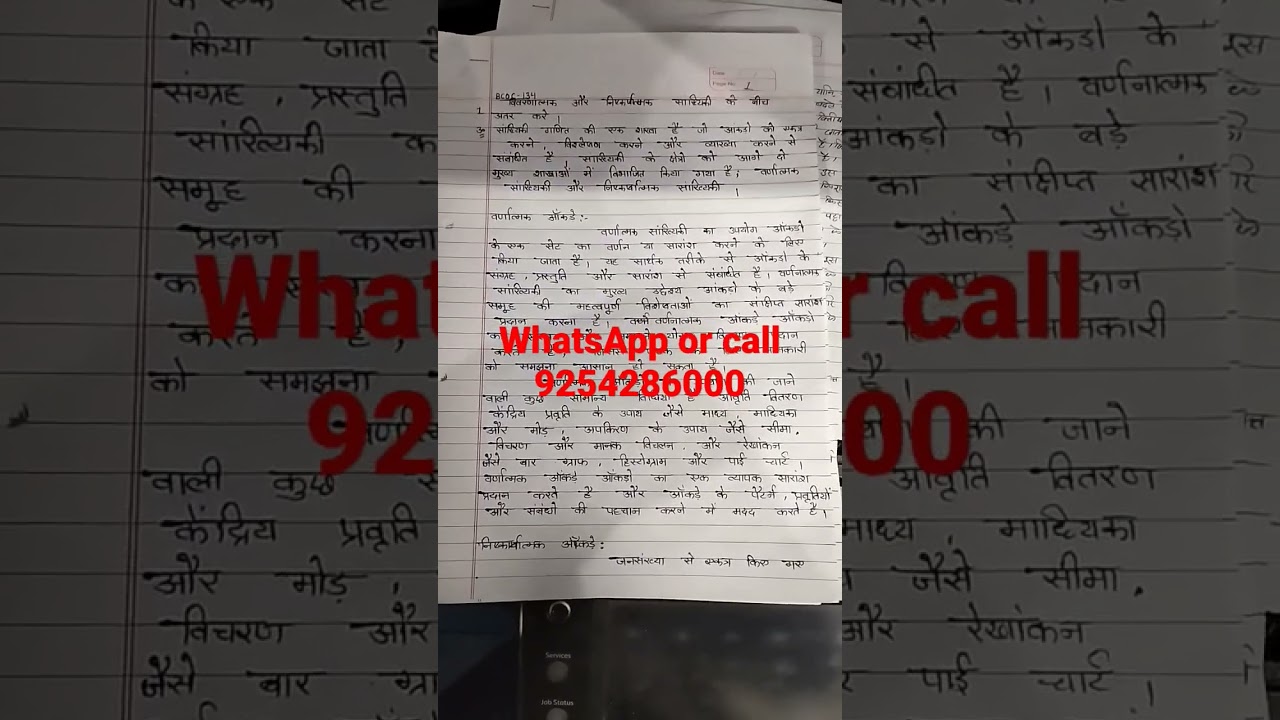 Date
Page No. 1
BCOG-134
1 विवरणात्मक और निष्कर्षात्मक सांख्यिकी के बीच
अंतर करे।
उ० सांख्यिकी गणित की एक शाखा है जो आंकड़ो को एकत्र
करने, विश्लेषण करने और व्याख्या करने से
संबंधित है, सांख्यिकी के क्षेत्रो को आगे दो
मुख्य शाखाओं में विभाजित किया गया है; वर्णात्मक
सांख्यिकी और निष्कर्षात्मक सांख्यिकी।
वर्णात्मक आँकडे:-
वर्णात्मक सांख्यिकी का उपयोग आँकडो
के एक सेट का वर्णन या सारांश करने के लिए
किया जाता है। यह सार्थक तरीके से आँकडो के
संग्रह, प्रस्तुति और सारांश से संबंधित है। वर्णनात्मक
सांख्यिकी का मुख्य उद्देश्य आंकड़ो के बड़े
समूह की महत्वपूर्ण विशेषताओं का संक्षिप्त सारांश
प्रदान करना है। वर्णनात्मक आंकड़े आँकड़ो
WhatsApp or call
9254286000
को समझना आसान हो सकता है।
की जाने
वाली कुछ सामान्य विधियां है आवृति वितरण
केंद्रिय प्रवृति के उपाय जैसे माध्य, माध्यिका
और मोड़, अपकिरण के उपाय जैसे सीमा,
विचरण और मानक विचलन और रेखांकन
जैसे बार ग्राफ, हिस्टोग्राम और पाई चार्ट।
वर्णात्मक आँकडे आँकडो का एक व्यापक सारांश
प्रदान करते है और आंकडे के पैटर्न, प्रवृतियों
और संबंधो की पहचान करने में मदद करते है।
निष्कर्षात्मक आँकडे:
जनसंख्या से एकत्र किए गए
Services
Job Status